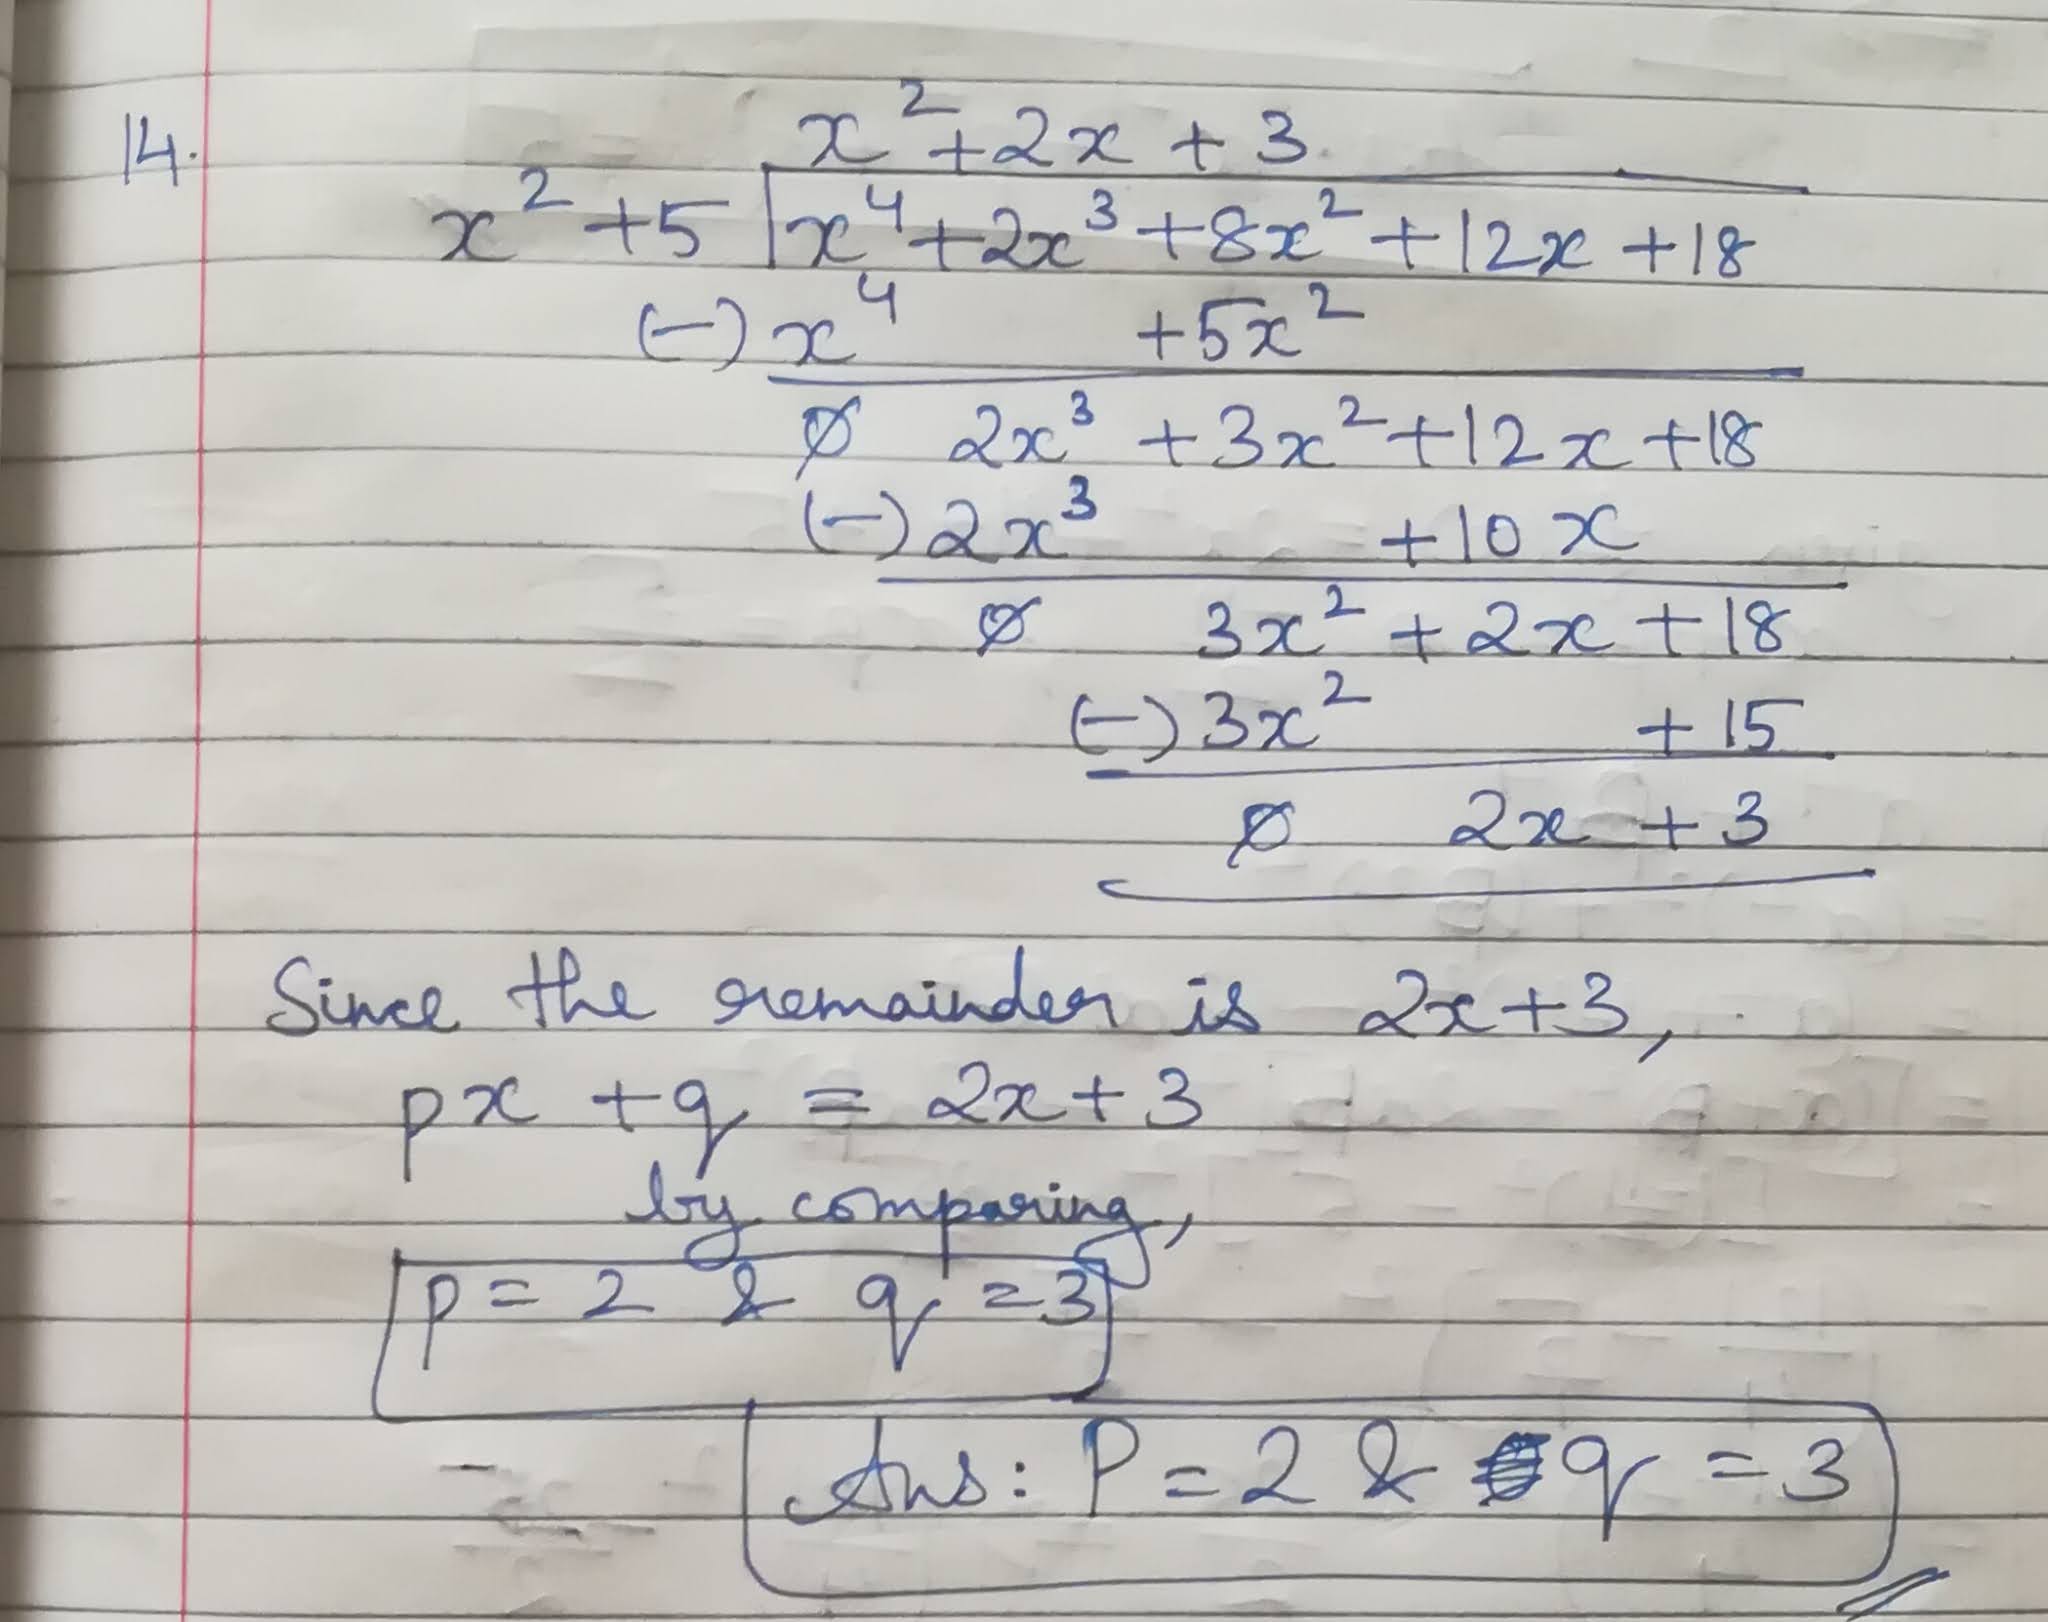 14.
x² + 2x + 3
x² + 5 | x⁴ + 2x³ + 8x² + 12x + 18
(-) x⁴ + 5x²
0 2x³ + 3x² + 12x + 18
(-) 2x³ + 10x
0 3x² + 2x + 18
(-) 3x² + 15
0 2x + 3
Since the remainder is 2x+3,
px + q = 2x + 3
by comparing,
p = 2 & q = 3
Ans: P = 2 & q = 3